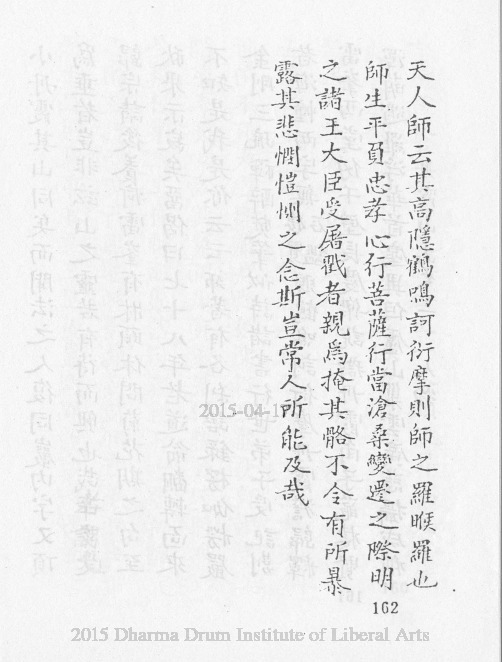 天人師云其高隱鶴鳴訶衍摩則師之羅睺羅也
師生平負忠孝心行菩薩行當滄桑變遷之際明
之諸王大臣受屠戮者親為掩其骼不令有所暴
露其悲憫惻之念斯豈常人所能及哉
162
2015-04-1
2015 Dharma Drum Institute of Liberal Arts